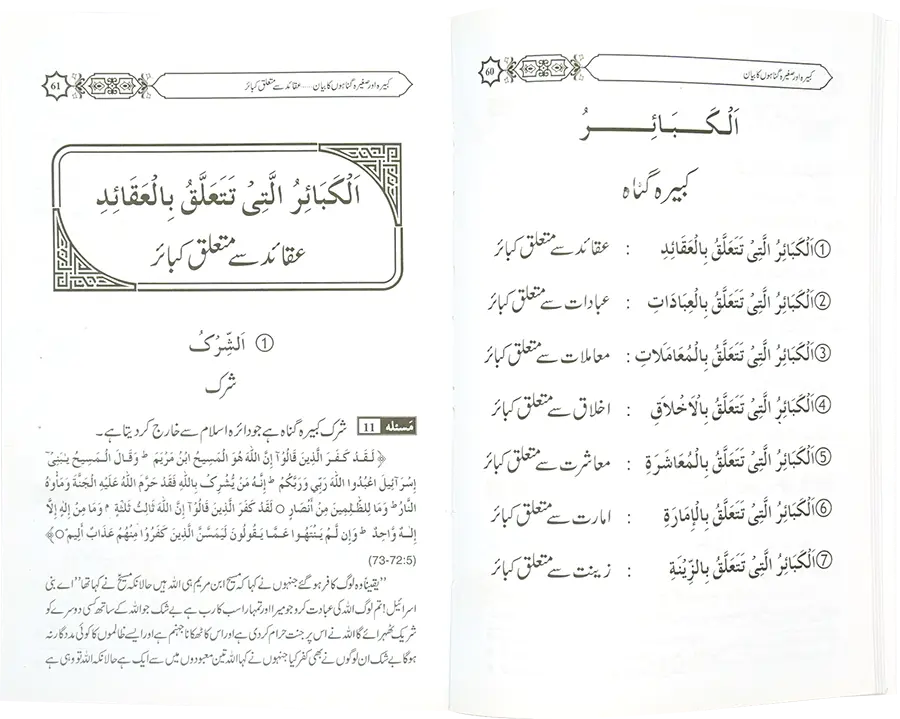 60
کبیرہ اور صغیرہ گناہوں کا بیان
اَلْكَبَائِرُ
کبیرہ گناہ
① اَلْكَبَائِرُ الَّتِیْ تَتَعَلَّقُ بِالْعَقَائِدِ : عقائد سے متعلق کبائر
② اَلْكَبَائِرُ الَّتِیْ تَتَعَلَّقُ بِالْعِبَادَاتِ : عبادات سے متعلق کبائر
③ اَلْكَبَائِرُ الَّتِیْ تَتَعَلَّقُ بِالْمُعَامَلَاتِ : معاملات سے متعلق کبائر
④ اَلْكَبَائِرُ الَّتِیْ تَتَعَلَّقُ بِالْاَخْلَاقِ : اخلاق سے متعلق کبائر
⑤ اَلْكَبَائِرُ الَّتِیْ تَتَعَلَّقُ بِالْمُعَاشَرَةِ : معاشرت سے متعلق کبائر
⑥ اَلْكَبَائِرُ الَّتِیْ تَتَعَلَّقُ بِالْإِمَارَةِ : امارت سے متعلق کبائر
⑦ اَلْكَبَائِرُ الَّتِیْ تَتَعَلَّقُ بِالزِّیْنَةِ : زینت سے متعلق کبائر
61
کبیرہ اور صغیرہ گناہوں کا بیان ..... عقائد سے متعلق کبائر
اَلْكَبَائِرُ الَّتِیْ تَتَعَلَّقُ بِالْعَقَائِدِ
عقائد سے متعلق کبائر
① اَلشِّرْكُ
شرک
مَسئله 11 شرک کبیرہ گناہ ہے جو دائرہ اسلام سے خارج کر دیتا ہے۔
﴿ لَقَدْ كَفَرَ الَّذِينَ قَالُوْآ إِنَّ اللّٰهَ هُوَ الْمَسِيحُ ابْنُ مَرْيَمَ ط وَقَالَ الْمَسِيحُ يٰبَنِيْٓ
إِسْرَآئِيلَ اعْبُدُوا اللّٰهَ رَبِّي وَرَبَّكُمْ ط إِنَّهُ مَنْ يُّشْرِكْ بِاللّٰهِ فَقَدْ حَرَّمَ اللّٰهُ عَلَيْهِ الْجَنَّةَ وَمَأْوٰهُ
النَّارُ ط وَمَا لِلظّٰلِمِينَ مِنْ أَنْصَارٍ ○ لَقَدْ كَفَرَ الَّذِينَ قَالُوْآ إِنَّ اللّٰهَ ثَالِثُ ثَلٰثَةٍ م وَمَا مِنْ إِلٰهٍ إِلَّآ
إِلٰهٌ وَّاحِدٌ ط وَإِن لَّمْ يَنْتَهُوا عَمَّا يَقُولُونَ لَيَمَسَّنَّ الَّذِينَ كَفَرُوا مِنْهُمْ عَذَابٌ أَلِيمٌ ○﴾
(73-72:5)
”یقیناً وہ لوگ کافر ہو گئے جنہوں نے کہا کہ مسیح ابن مریم ہی اللہ ہیں حالانکہ مسیح نے کہا تھا ”اے بنی
اسرائیل! تم لوگ اللہ کی عبادت کرو جو میرا اور تمہارا سب کا رب ہے بے شک جو اللہ کے ساتھ کسی دوسرے کو
شریک ٹھہرائے گا اللہ نے اس پر جنت حرام کر دی ہے اور اس کا ٹھکانا جہنم ہے اور ایسے ظالموں کا کوئی مددگار نہ
ہو گا بے شک ان لوگوں نے بھی کفر کیا جنہوں نے کہا اللہ تین معبودوں میں سے ایک ہے حالانکہ اللہ تو وہی ہے